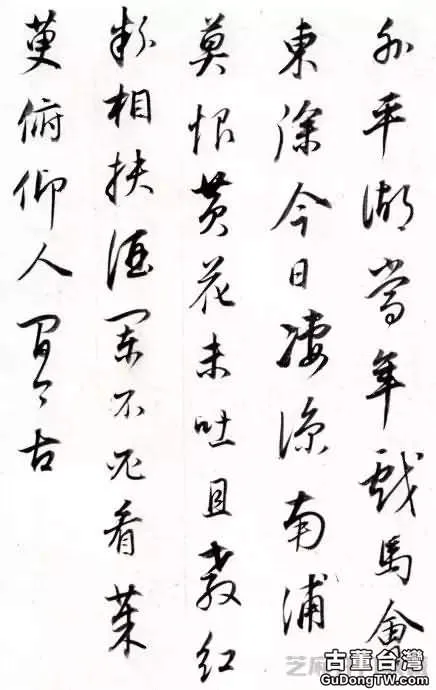 外平湖當年戲馬會
東徐今日淒涼南浦
莫恨黄花未吐且教紅
粉相扶酒闌不必看茱
萸俯仰人間今古
芝麻
古董台灣
GuDongTW.com